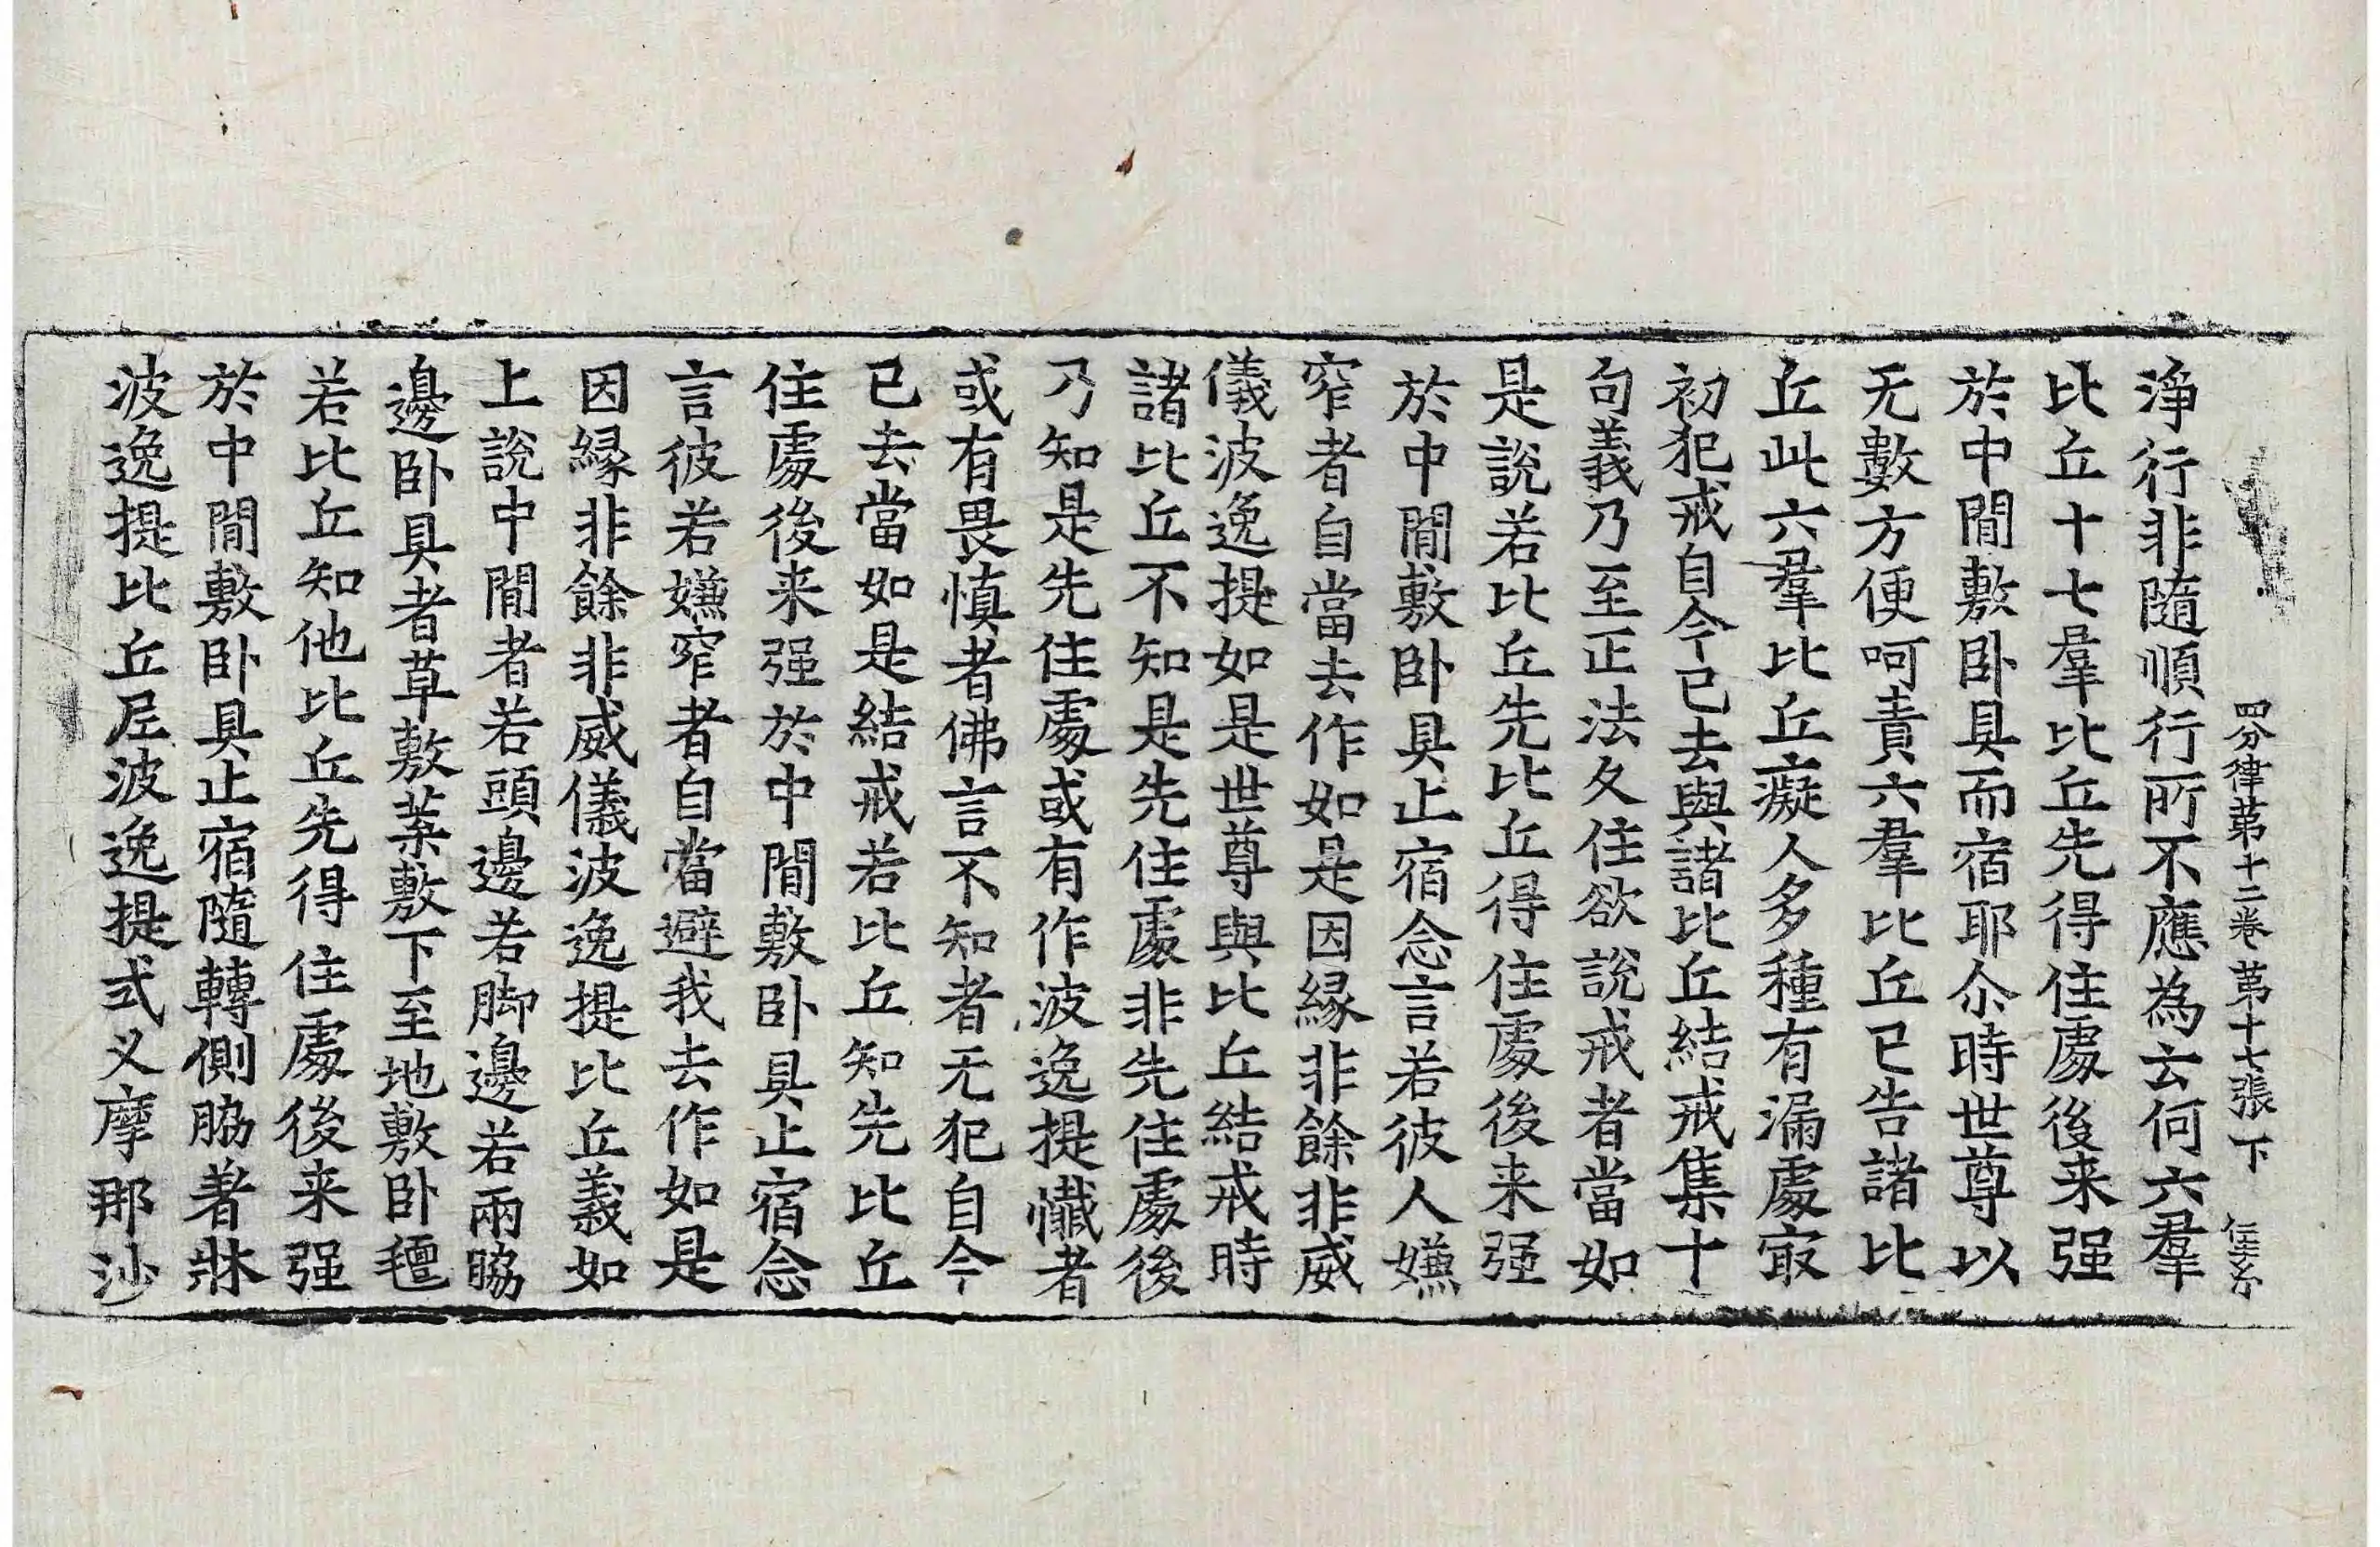 四分律苐十二卷 苐十七張 下
淨行非隨順行所不應為云何六羣
比丘十七羣比丘先得住處後来强
於中間敷卧具而宿耶尒時世尊以
无數方便呵責六羣比丘已告諸比
丘此六羣比丘癡人多種有漏處㝡
初犯戒自今已去與諸比丘結戒集十
句義乃至正法久住欲說戒者當如
是說若比丘先比丘得住處後来强
於中間敷卧具止宿念言若彼人嫌
窄者自當去作如是因縁非餘非威
儀波逸提如是世尊與比丘結戒時
諸比丘不知是先住處非先住處後
乃知是先住處或有作波逸提懺者
或有畏慎者佛言不知者无犯自今
已去當如是結戒若比丘知先比丘
住處後来强於中間敷卧具止宿念
言彼若嫌窄者自當避我去作如是
因縁非餘非威儀波逸提比丘義如
上說中間者若頭邊若脚邊若兩脇
邊卧具者草敷葉敷下至地敷卧氊
若比丘知他比丘先得住處後来强
於中間敷卧具止宿隨轉側脇著牀
波逸提比丘尼波逸提式叉摩那沙